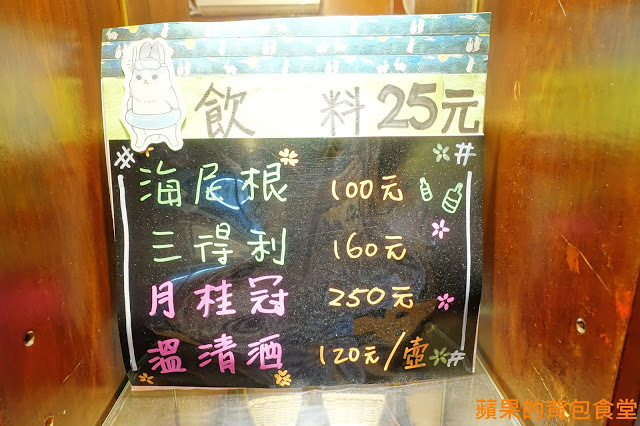 飲 料 25元
海尼根 100元
三得利 160元
月桂冠 250元
溫清酒 120元/壺
蘋果的背包食堂